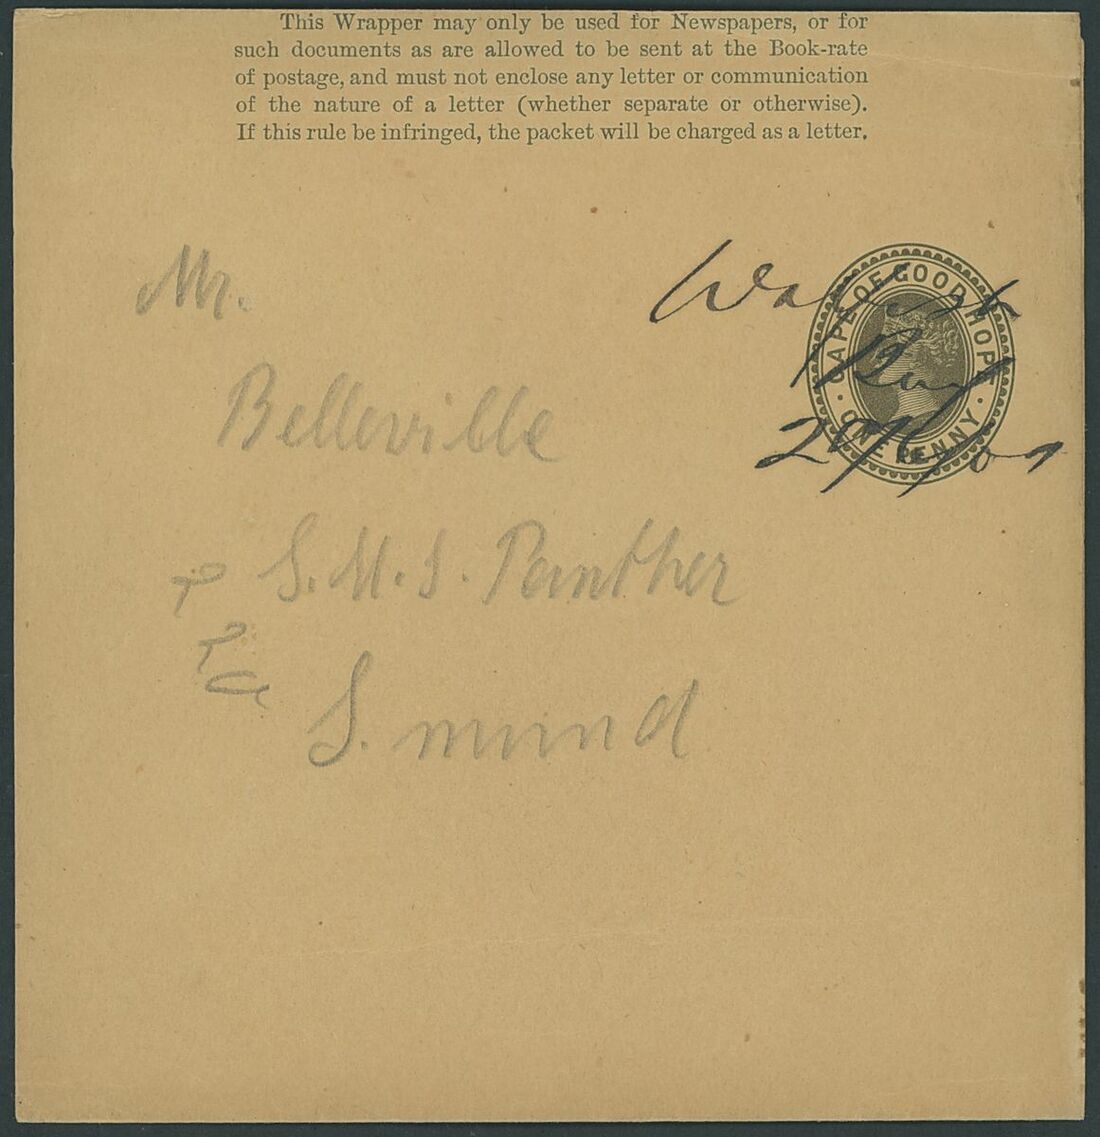 This Wrapper may only be used for Newspapers, or for
such documents as are allowed to be sent at the Book-rate
of postage, and must not enclose any letter or communication
of the nature of a letter (whether separate or otherwise).
If this rule be infringed, the packet will be charged as a letter.
Mr.
Walfish
Bay
CAPE OF GOOD HOPE
ONE PENNY
Belleville
S.M.S. Panther
S. mund